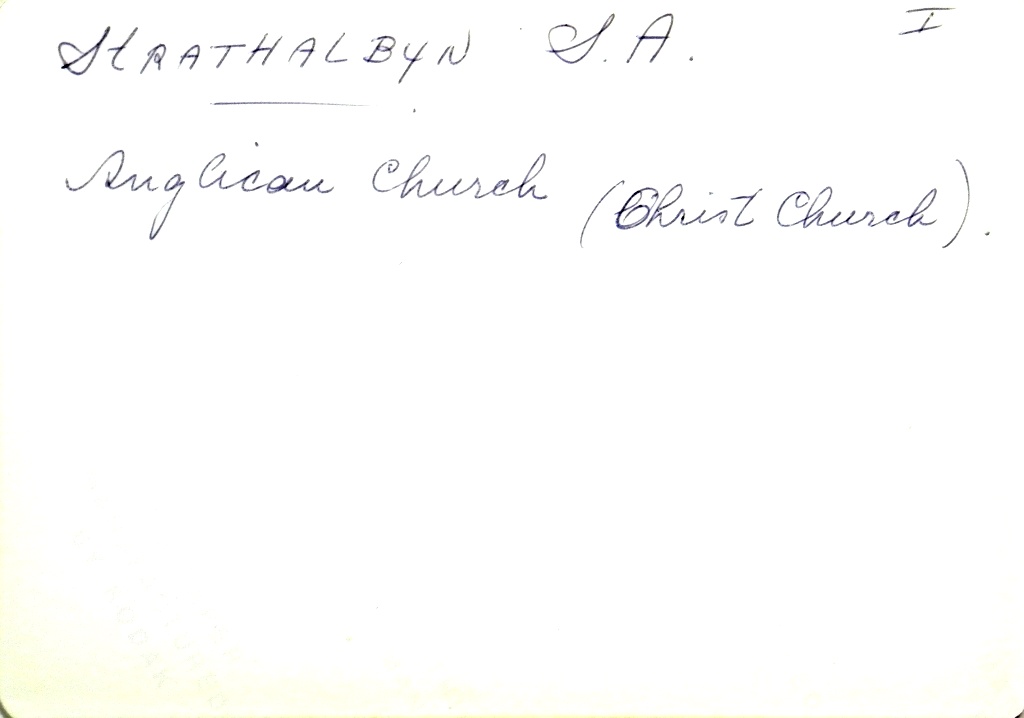 StRATHALBYN S.A. I
Anglican Church (Christ Church).